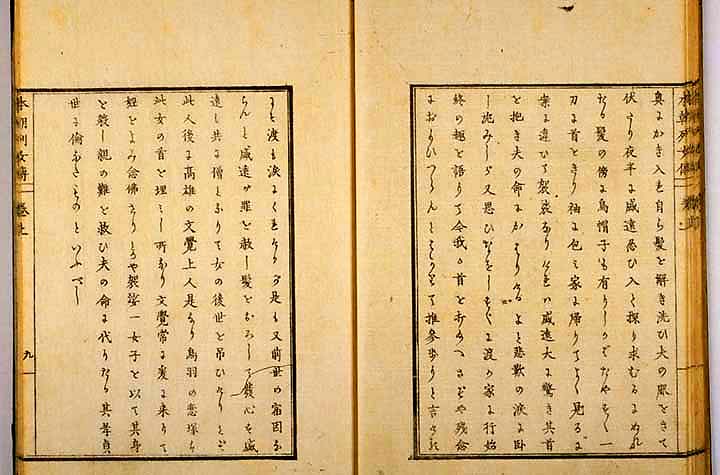 奥にかき入れ自ら髪を解き洗ひ夫の風をきて
伏たり夜半に盛遠忍び入て探り求むるにぬれ
たる髪の傍に烏帽子も有りしかばたやすく一
刀に首をきり袖に包み家に帰りてよく見るに
案に違ひて袈裟なりければ盛遠大に驚き其首
を抱き夫の命にかはりけるよと悲歎の涙に臥
し沈みしが又思ひなをし渡が家に行始
終の趣を語りて今我が首を打さぞや残念
におぼしつらんと推参
渡も涙にくれながら是も又前世の宿因な
らんと盛遠が罪を赦し髪をおろして發心を盛
遠も共に僧となりて女の後世を弔ひけりとぞ
此人後に高雄の文覺上人是なり鳥羽の恋塚は
此女の首を埋し所なり文覺常に爰に来りて
経をよみ念佛せりとかや袈裟一女子を以て其身
を殺し親の難を救ひ夫の命に代りたる其孝貞
世に倫なきものといふべし
本朝列女傳 巻之
九